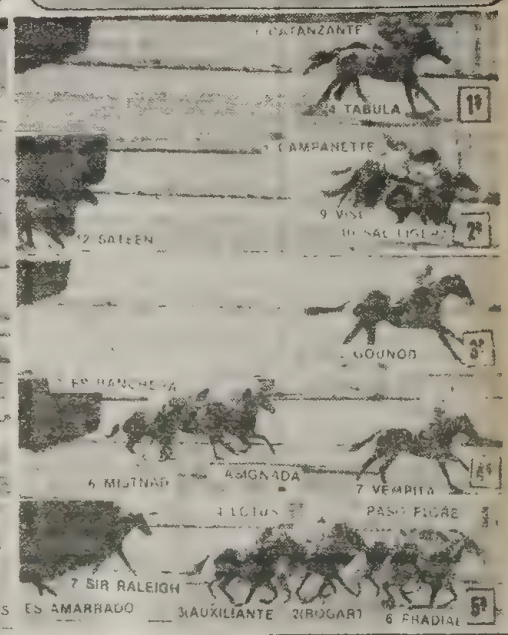 CATANZANTE
4 TABULA
1ª
CAMPANETTE
9 VISE
10 SAL LIGERA
2ª
12 SALEEN
GOUNOD
3ª
RANCHERA
6 MISTNAR
ASIGNADA
7 VEMPITA
4ª
4 LOTUS
PASO FIORE
7 SIR RALEIGH
ES AMARRADO
3(AUXILIANTE
2(BOGART
6 FRADIAL
5ª